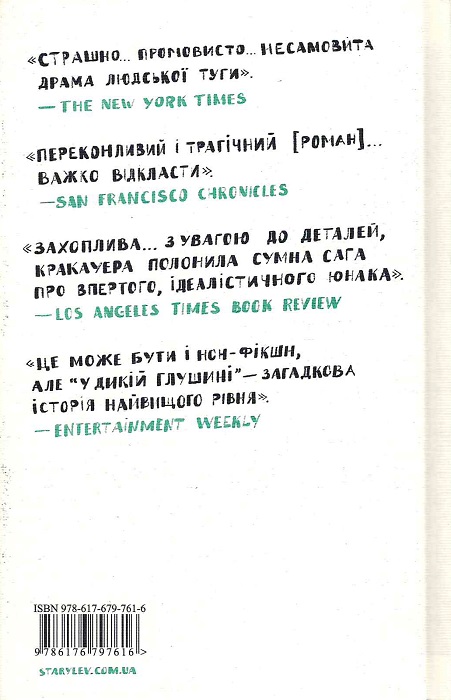 «СТРАШНО... ПРОМОВИСТО... НЕСАМОВИТА
ДРАМА ЛЮДСЬКОЇ ТУГИ».
—THE NEW YORK TIMES
«ПЕРЕКОНЛИВИЙ І ТРАГІЧНИЙ [РОМАН]...
ВАЖКО ВІДКЛАСТИ».
—SAN FRANCISCO CHRONICLES
«ЗАХОПЛИВА... З УВАГОЮ ДО ДЕТАЛЕЙ,
КРАКАУЕРА ПОЛОНИЛА СУМНА САГА
ПРО ВПЕРТОГО, ІДЕАЛІСТИЧНОГО ЮНАКА».
—LOS ANGELES TIMES BOOK REVIEW
«ЦЕ МОЖЕ БУТИ І НОН-ФІКШН,
АЛЕ “У ДИКІЙ ГЛУШИНІ”—ЗАГАДКОВА
ІСТОРІЯ НАЙВИЩОГО РІВНЯ».
—ENTERTAINMENT WEEKLY
ISBN 978-617-679-761-6
9 786176 797616 >
STARYLEV.COM.UA